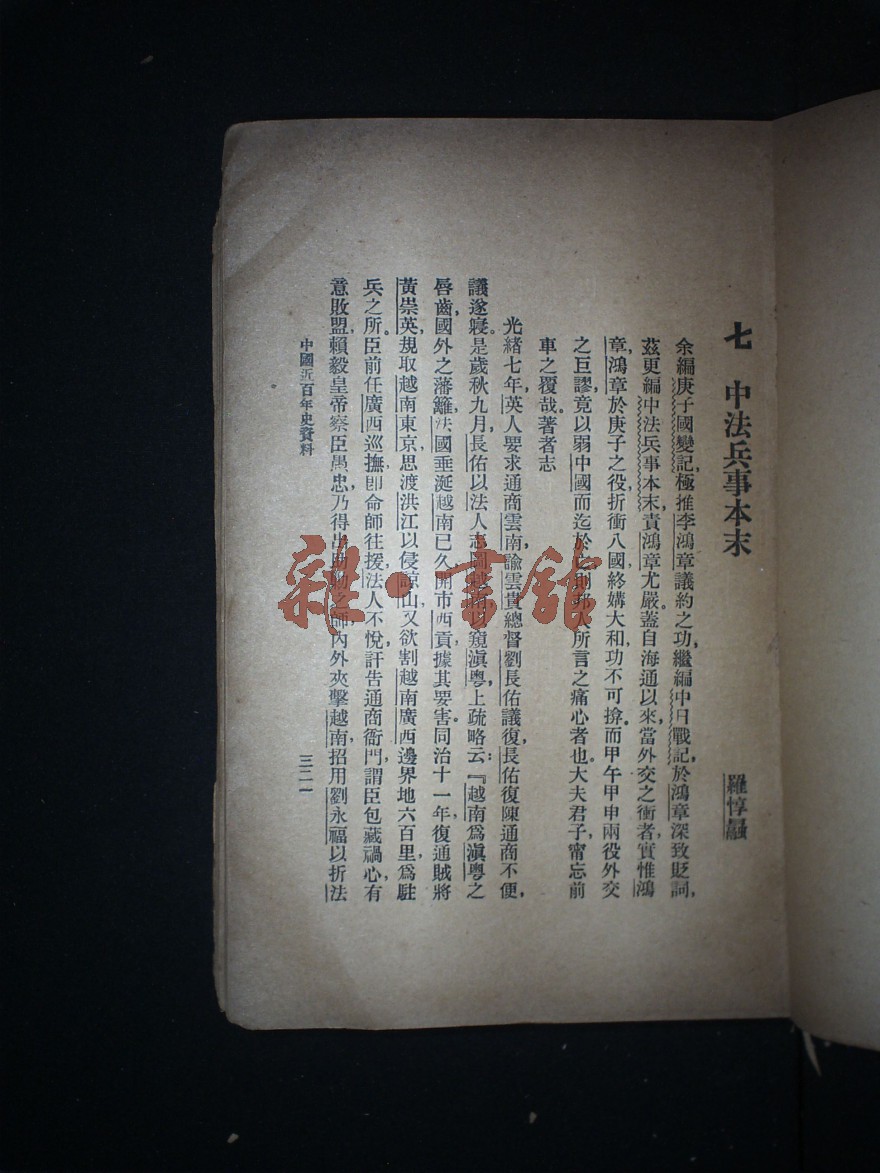 七　中法兵事本末
羅惇曧
余編庚子國變記，極推李鴻章議約之功，繼編中日戰記，於鴻章深致貶詞，
茲更編中法兵事本末，責鴻章尤嚴。蓋自海通以來，當外交之衝者，實惟鴻
章，鴻章於庚子之役，折衝八國，終媾大和，功不可揜。而甲午甲申兩役，外交
之巨謬，竟以弱中國而迄於亡，則邦人所言之痛心者也。大夫君子，甯忘前
車之覆哉。著者志
光緒七年，英人要求通商雲南，諭雲貴總督劉長佑議復，長佑復陳通商不便，
議遂寢。是歲秋九月，長佑以法人志圖越南，以窺滇粵，上疏略云：『越南爲滇粵之
唇齒，國外之藩籬，法國垂涎越南已久，開市西貢，據其要害。同治十一年，復通賊將
黃崇英，規取越南東京，思渡洪江以侵諒山，又欲割越南廣西邊界地六百里，爲駐
兵之所。臣前任廣西巡撫，卽命師往援，法人不悅，訐告通商衙門，謂臣包藏禍心，有
意敗盟，賴毅皇帝察臣愚忠，乃得出助勦之師，內外夾擊，越南招用劉永福，以折法
中國近百年史資料
三二一
雜·書館